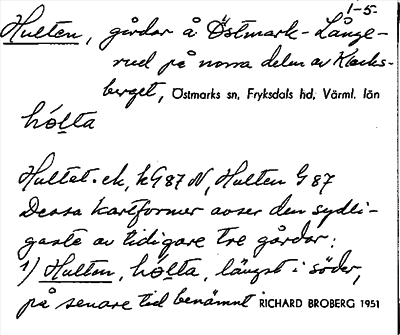 1-5.
Hulten, gårdar å Östmark-Långe-
rud på norra delen av Klacks-
berget, Östmarks sn, Fryksdals hd, Värml. län
hól̥ta
Hultet. ek, kG 87 N, Hulten G 87
Dessa kartformer avser den sydli-
gaste av tidigare tre gårdar:
1) Hulten, hól̥ta, längst i söder,
på senare tid benämnt RICHARD BROBERG 1951